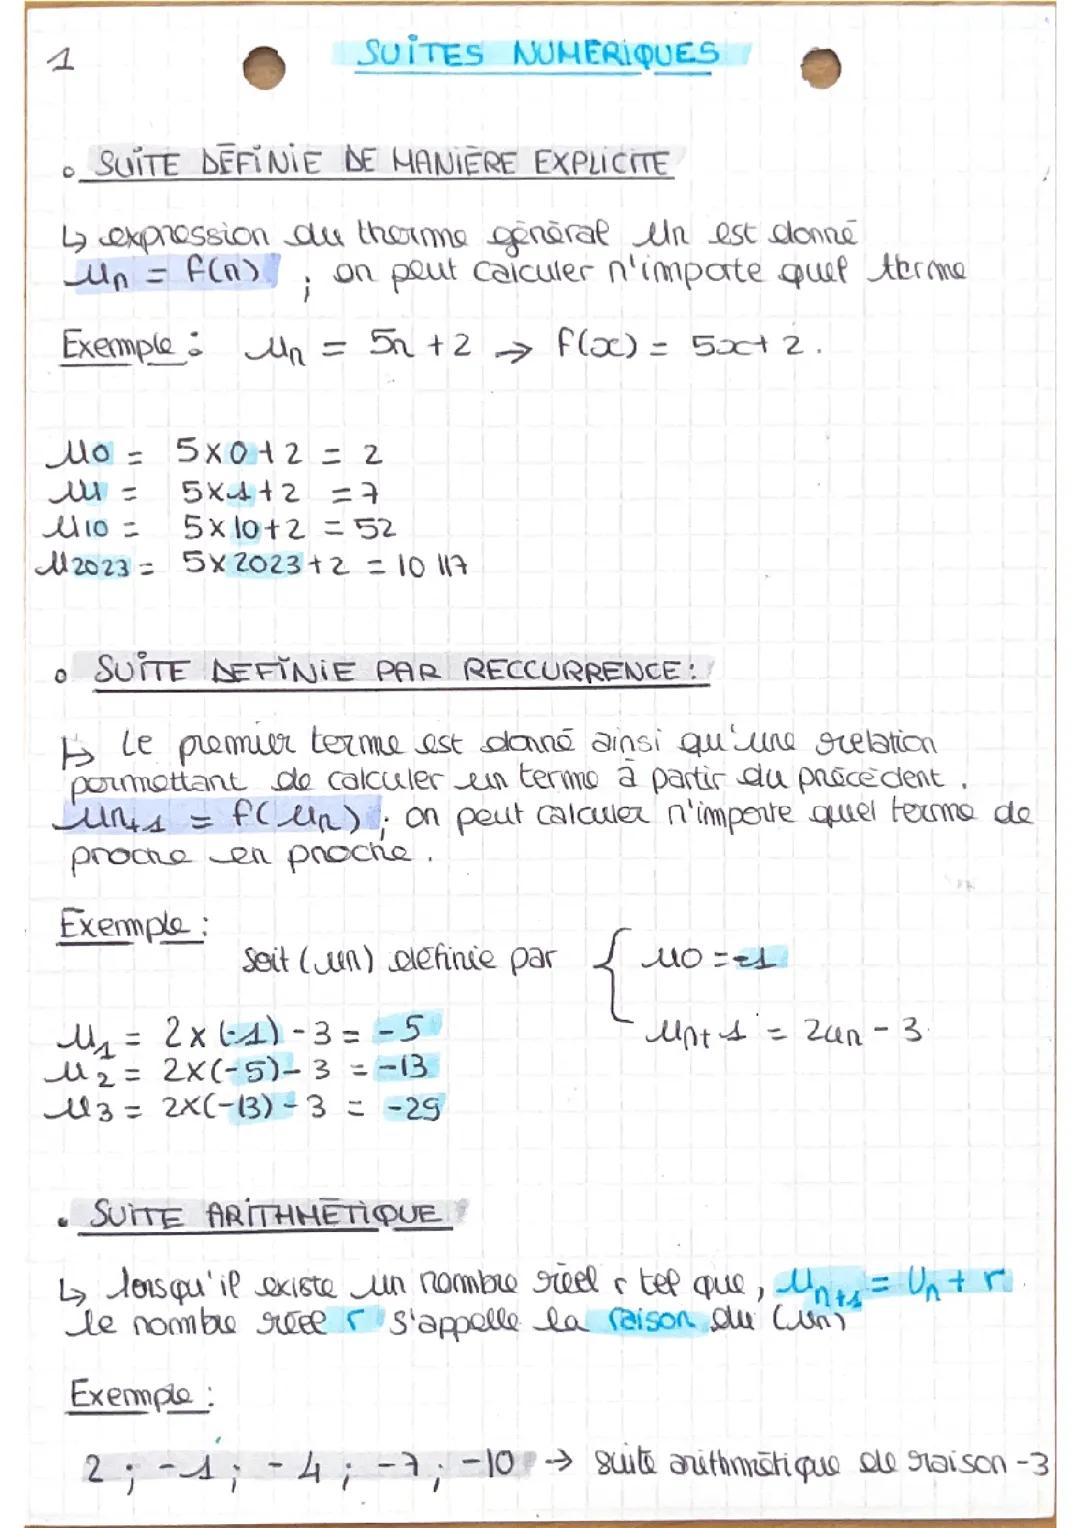 1
SUITES NUMERIQUES
SUITE DÉFINIE DE MANIÈRE EXPLICITE
↳ expression du therme général Un est donné
Un = f(n) ; on peut calculer n'importe quel terme
Exemple : Un = 5n + 2 → f(x) = 5x + 2.
U0 = 5x0+2 = 2
U1 = 5x1+2 = 7
U10 = 5x10+2 = 52
U2023 = 5x2023+2 = 10 117
SUITE DEFINIE PAR RECCURRENCE :
↳ Le premier terme est donné ainsi qu'une relation
permettant de calculer un terme à partir du précédent.
Un+1 = f(Un) ; on peut calculer n'importe quel terme de
proche en proche.
Exemple :
Soit (un) définie par { u0 = -1
un+1 = 2un - 3
U1 = 2x(-1)-3 = -5
U2 = 2x(-5)-3 = -13
U3 = 2x(-13)-3 = -29
SUITE ARITHMÉTIQUE
↳ lorsqu'il existe un nombre réel r tel que, Un+1 = Un + r
le nombre réel r s'appelle la raison du (un)
Exemple :
2 ; -1 ; -4 ; -7 ; -10 → suite arithmétique de raison -3